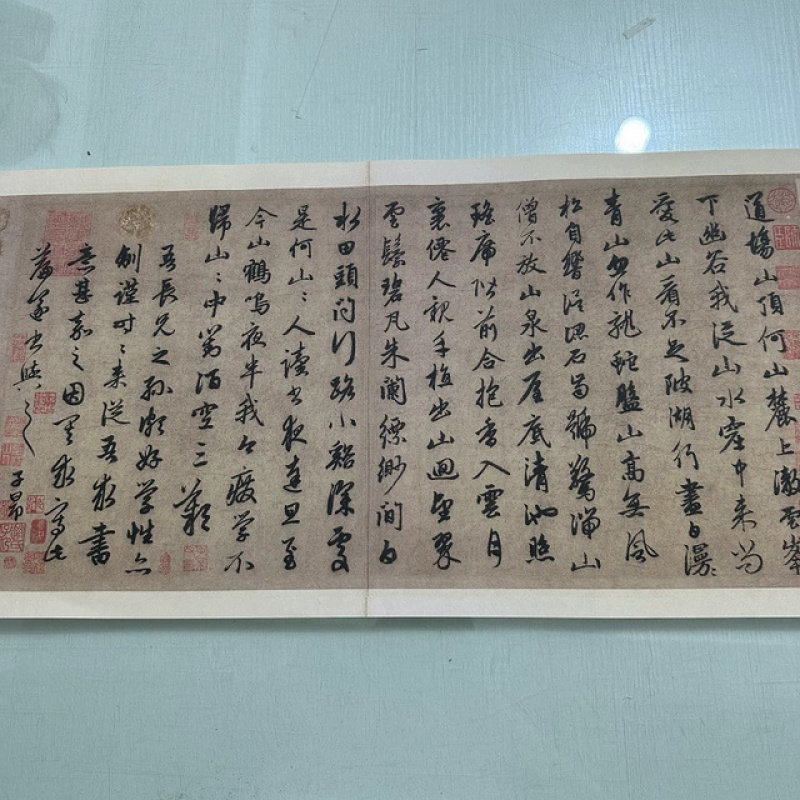 道場山頂何山麓上澈雲峯
下幽谷我從山水窟中来尚
愛此山看不足陂湖行盡白漫〻
青山忽作龍蛇盤山高無風
松自響誤認石齒號驚湍山
僧不放山泉出屋底清池照
瑤席階前合抱香入雲月
裏僊人親手植出山迴望翠
雲鬟碧瓦朱闌縹緲間白
水田頭問行路小谿深處
是何山〻人讀書夜達旦至
今山鶴鳴夜半我今廢学不
歸山〻中對酒空三歎
吾長兄之孫好学性亦
謹时〻来從吾求書
意甚嘉之因其求寫此
篇遂書與之
子昂